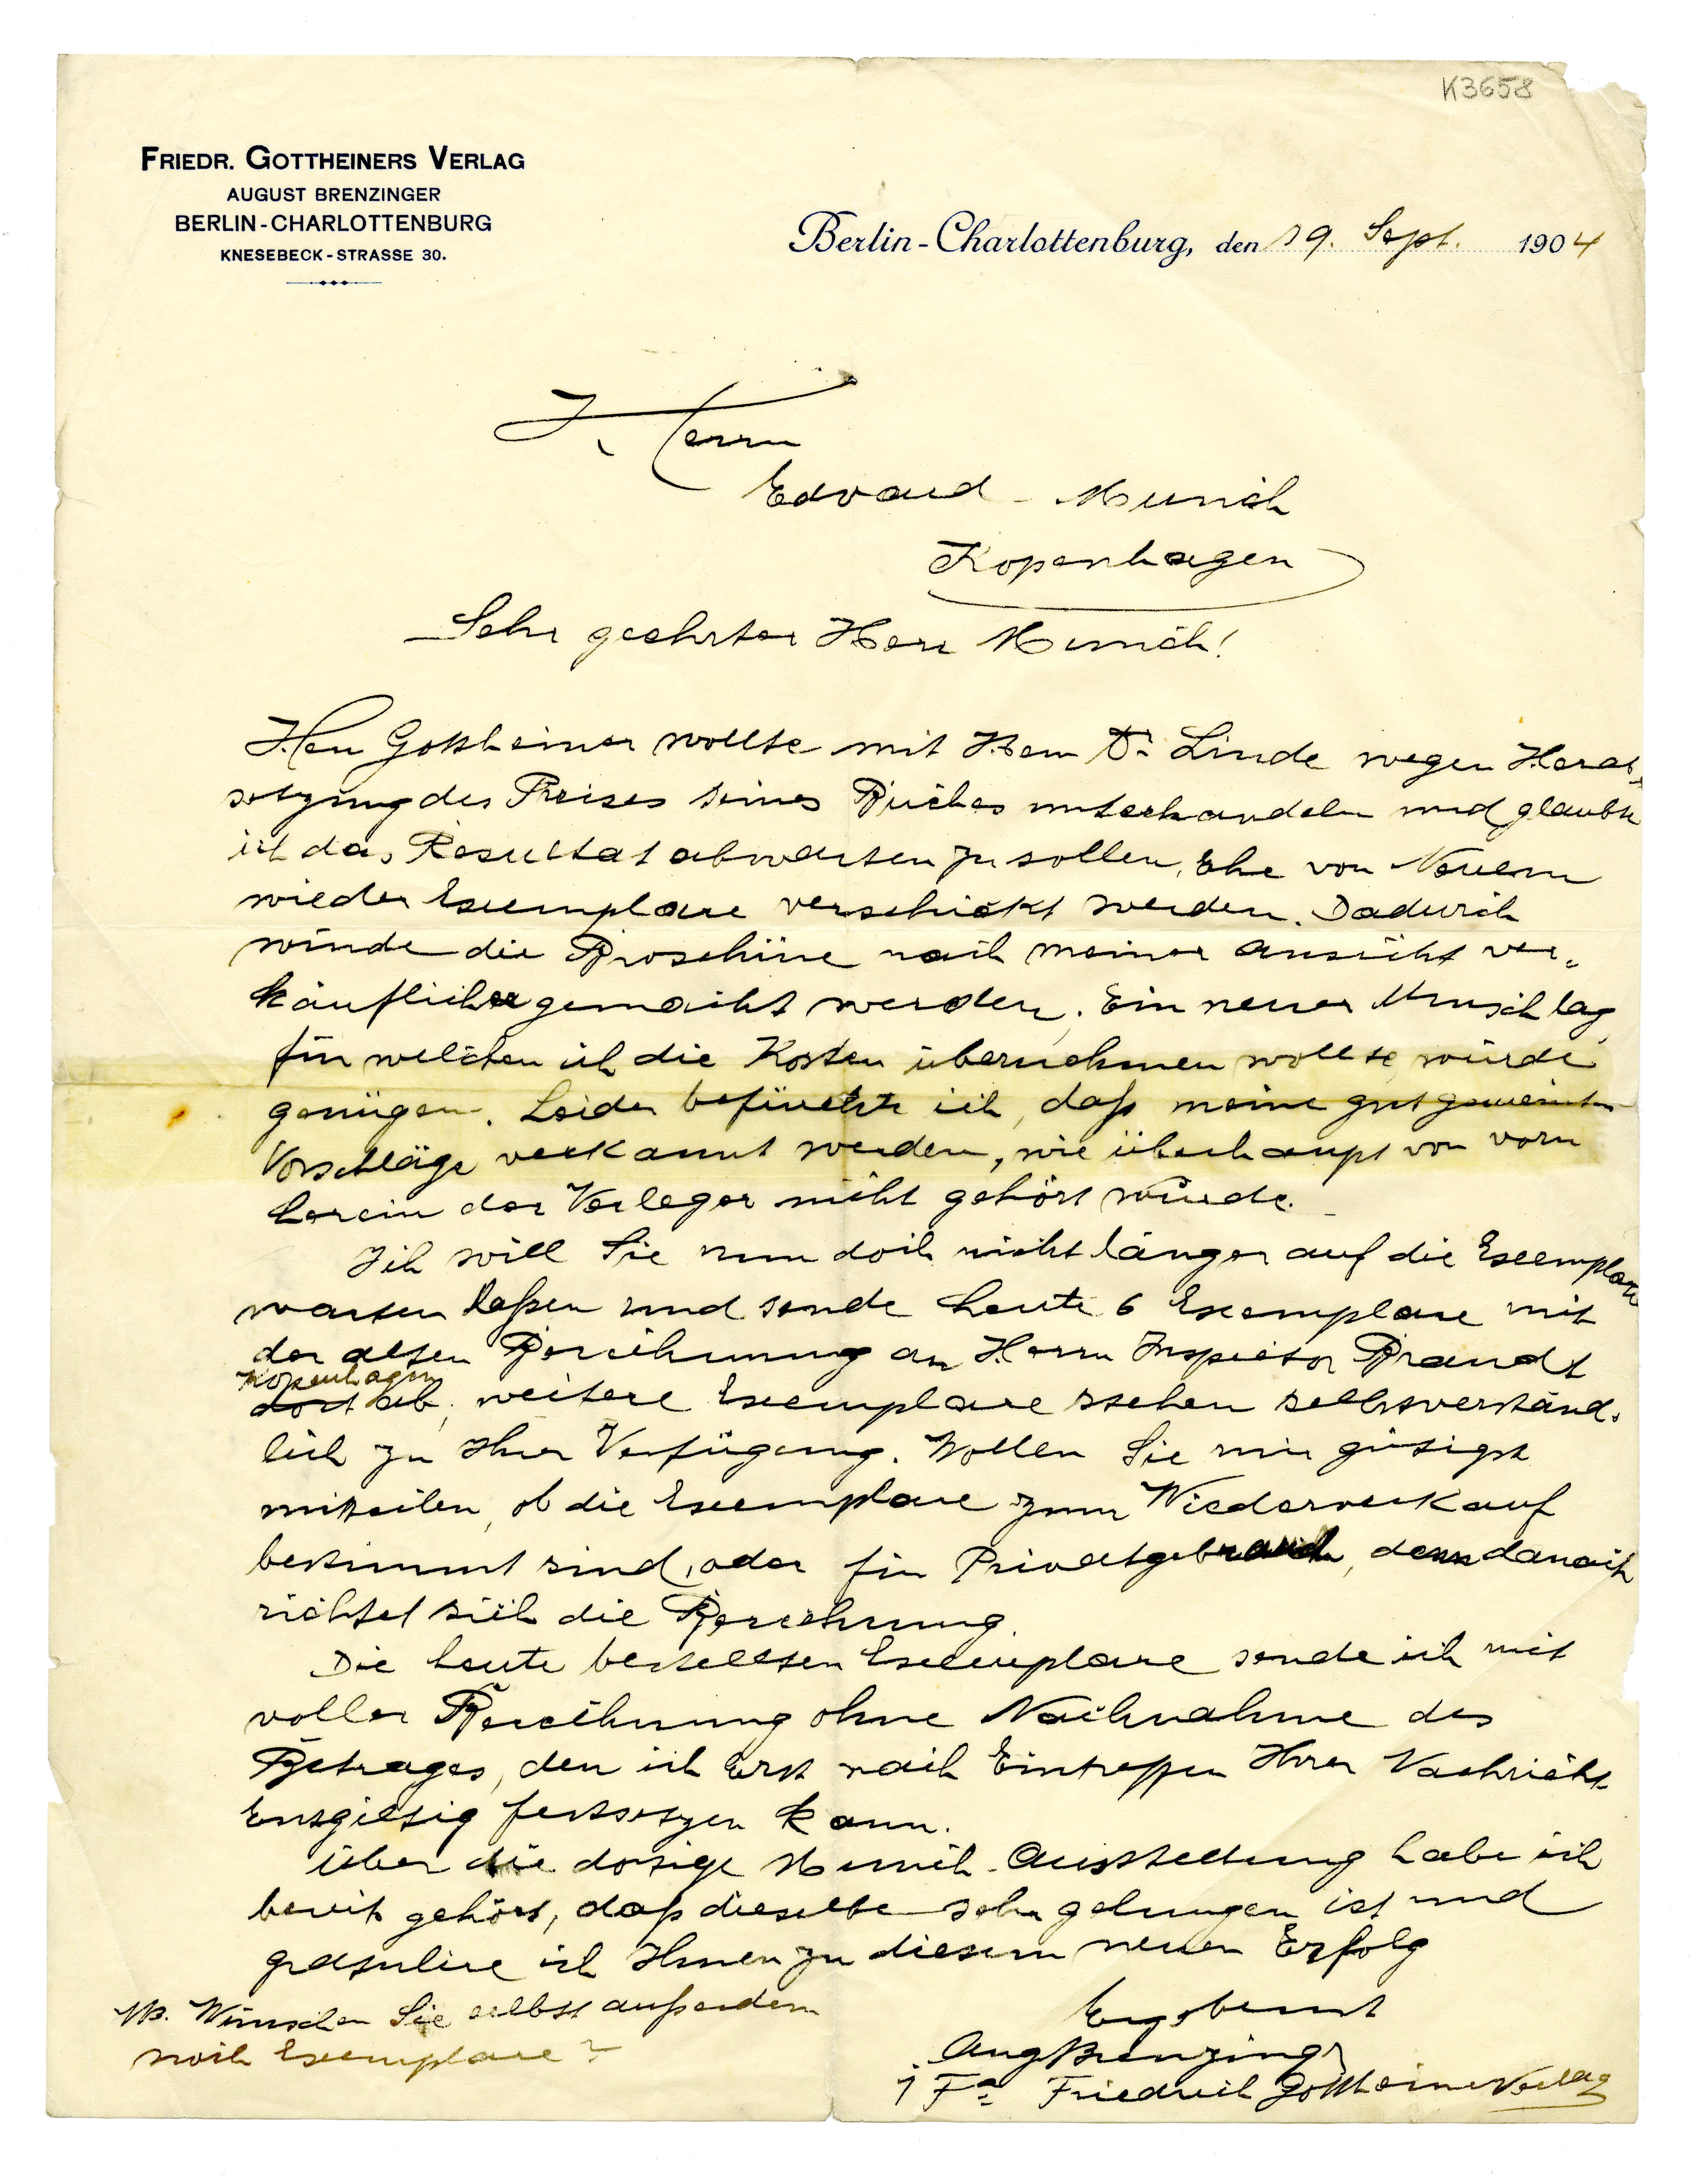 K3658
FRIEDR. GOTTHEINERS VERLAG
AUGUST BRENZINGER
BERLIN-CHARLOTTENBURG
KNESEBECK-STRASSE 30.
Berlin-Charlottenburg, den 19. Sept. 1904
Herrn
Edvard Munch
Kopenhagen
Sehr geehrter Herr Munch!
Herr Gottheiner wollte mit Herrn Dr Linde wegen Herab-
setzung des Preises seines Buches unterhandeln und glaubte
ich das Resultat abwarten zu sollen, Ehe von Neuem
wieder Exemplare verschickt werden. Dadurch
würde die Broschüre nach meiner Ansicht ver-
käuflicher gemacht werden. Ein neuer Umschlag
für welchen ich die Kosten übernehmen wollte würde
genügen. Leider befürchte ich, daß meine gut gemeinten
Vorschläge verkannt werden, wie überhaupt von vorn
herein der Verleger nicht gehört wurde.
Ich will Sie nun doch nicht länger auf die Exemplare
warten laßen und sende heute 6 Exemplare mit
der alten Berechnung an Herrn Inspector Brandt
Kopenhagen
dort ab, weitere Exemplare stehen selbstverständ-
lich zu Ihrer Verfügung. Wollen Sie mir gütigst
mitteilen, ob die Exemplare zum Wiederverkauf
bestimmt sind, oder für Privatgebrauch, denn danach
richtet sich die Berechnung.
Die heute bestellten Exemplare sende ich mit
voller Berechnung ohne Nachnahme des
Betrages, den ich Erst nach Eintreffen Ihrer Nachricht
Entgiltig festsetzen kann.
über die dortige Munch-Ausstellung habe ich
bereits gehört, daß dieselbe sehr gelungen ist und
gratulire ich Ihnen zu diesem neuen Erfolg
Ergebenst
Aug Brenzinger
i Fa Friedrich Gottheiners Verlag
NB. Wünschen Sie selbst außerdem
noch Exemplare?